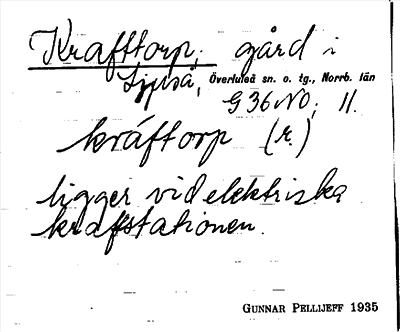 Krafttorp, gård i
Ljuså, Överluleå sn. o. tg., Norrb. län
G 36 NO; 11.
kráftorp (r.)
ligger vid elektriska
kraftstationen.
GUNNAR PELLIJEFF 1935